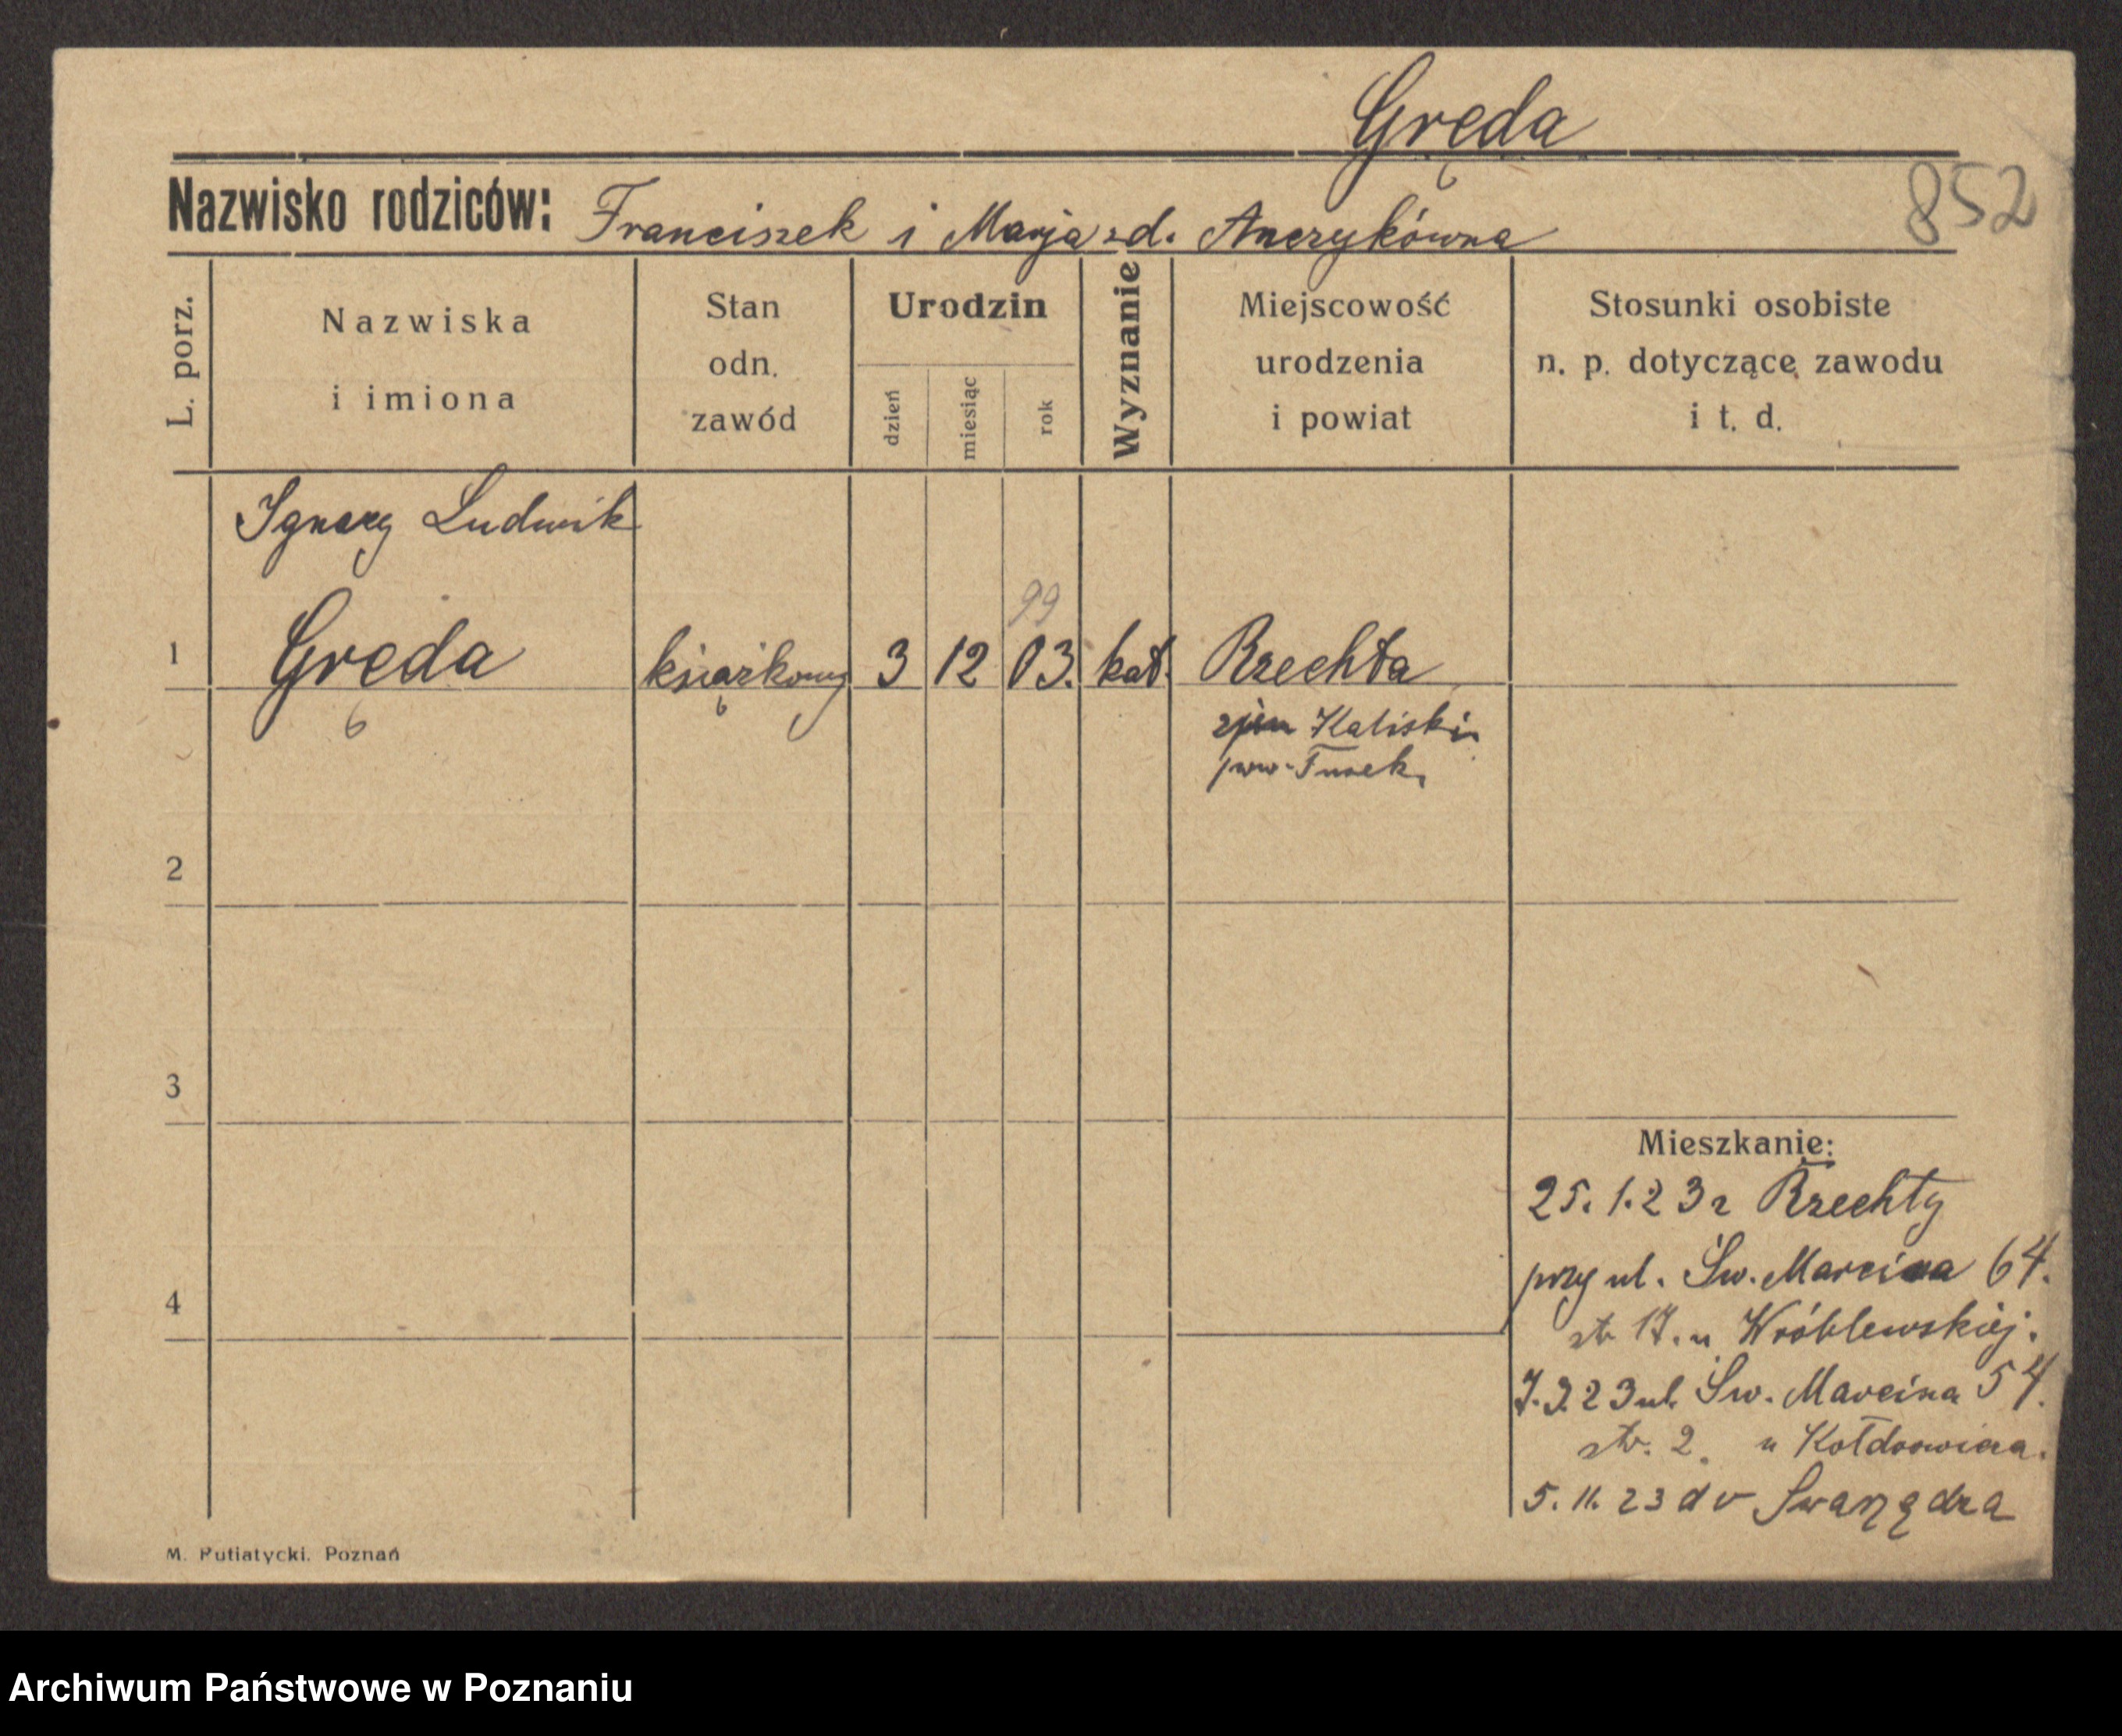 Gręda
852
Nazwisko rodziców: Franciszek i Marja zd. Anczykówna
L. porz.
Nazwiska
i imiona
Stan
odn.
zawód
Urodzin
dzień
miesiąc
rok
Wyznanie
Miejscowość
urodzenia
i powiat
Stosunki osobiste
n. p. dotyczące zawodu
i t. d.
Ignacy Ludwik
99
1 Gręda książkowy 3 12 03. kat. Rzechta
Kaliski
pow. Turek
2
3
4
Mieszkanie:
25.1.23 z Rzechty
przy ul. Św. Marcina 64.
str 17. u Wróblewskiej.
7.3.23 ul. Św. Marcina 54.
str. 2. u
5.11.23 do Swarzędza
M. Putiatycki. Poznań
Archiwum Państwowe w Poznaniu